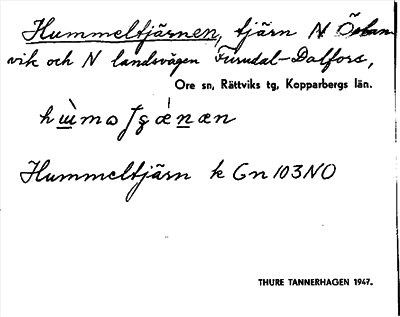 Hummeltjärnen, tjärn N
vik och N landsvägen Furudal-Dalfors,
Ore sn, Rättviks tg, Kopparbergs län.
Hummeltjärn k Gn 103 NO
THURE TANNERHAGEN 1947.